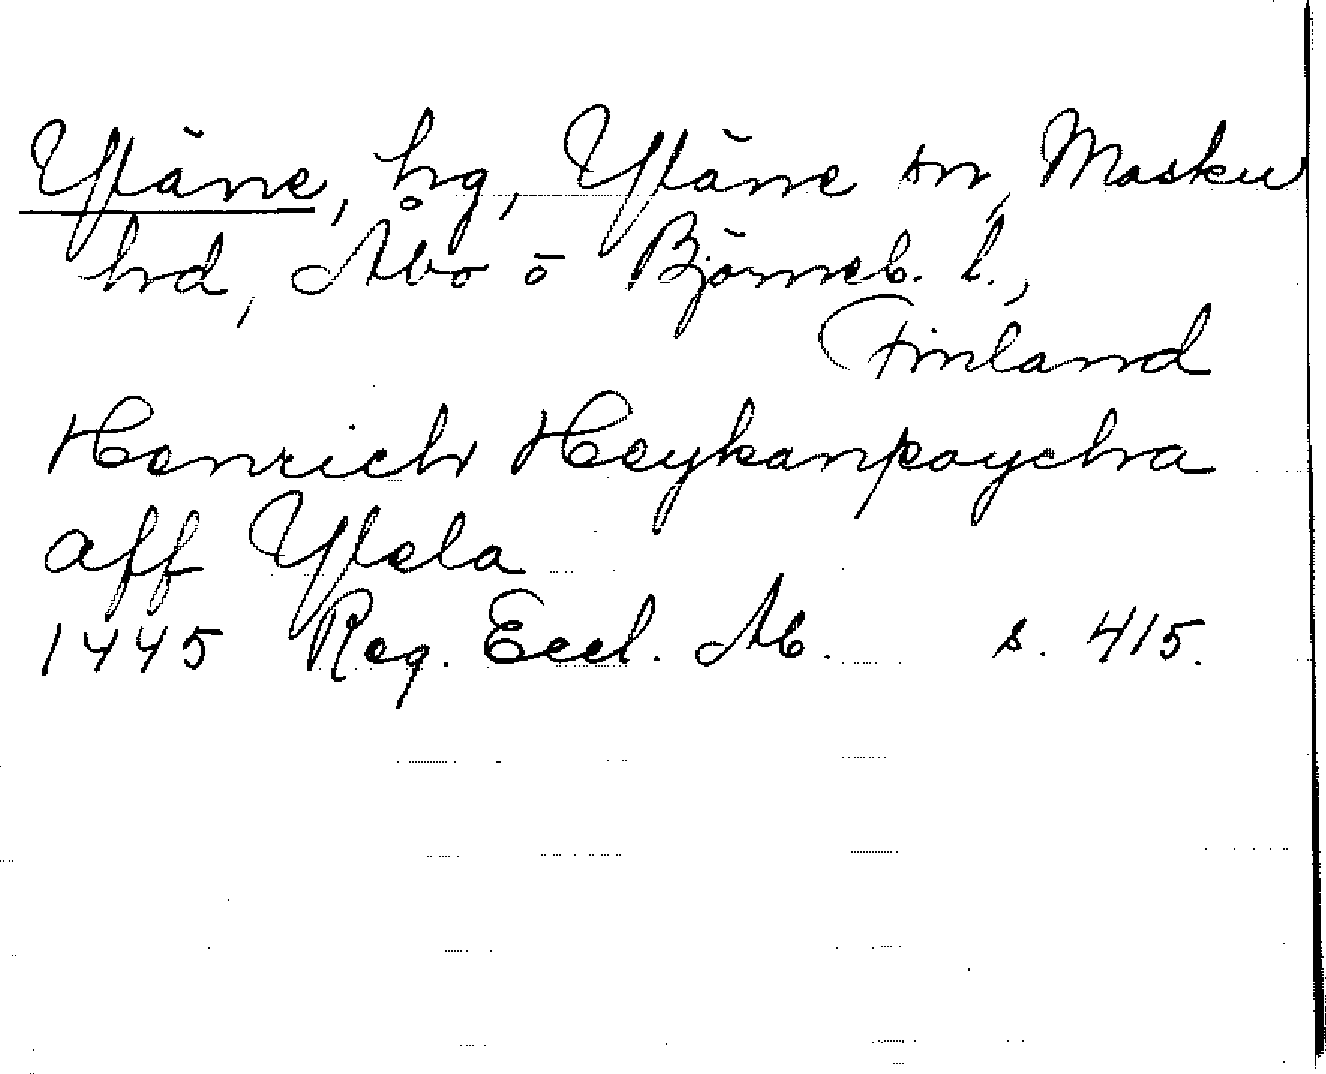 Yläne, hg, Yläne sn, Masku
hd, Åbo o Björneb. l.,
Finland
Henrich Heykanpoycha
aff Ylela
1445 Reg. Eccl. Ab. s. 415.